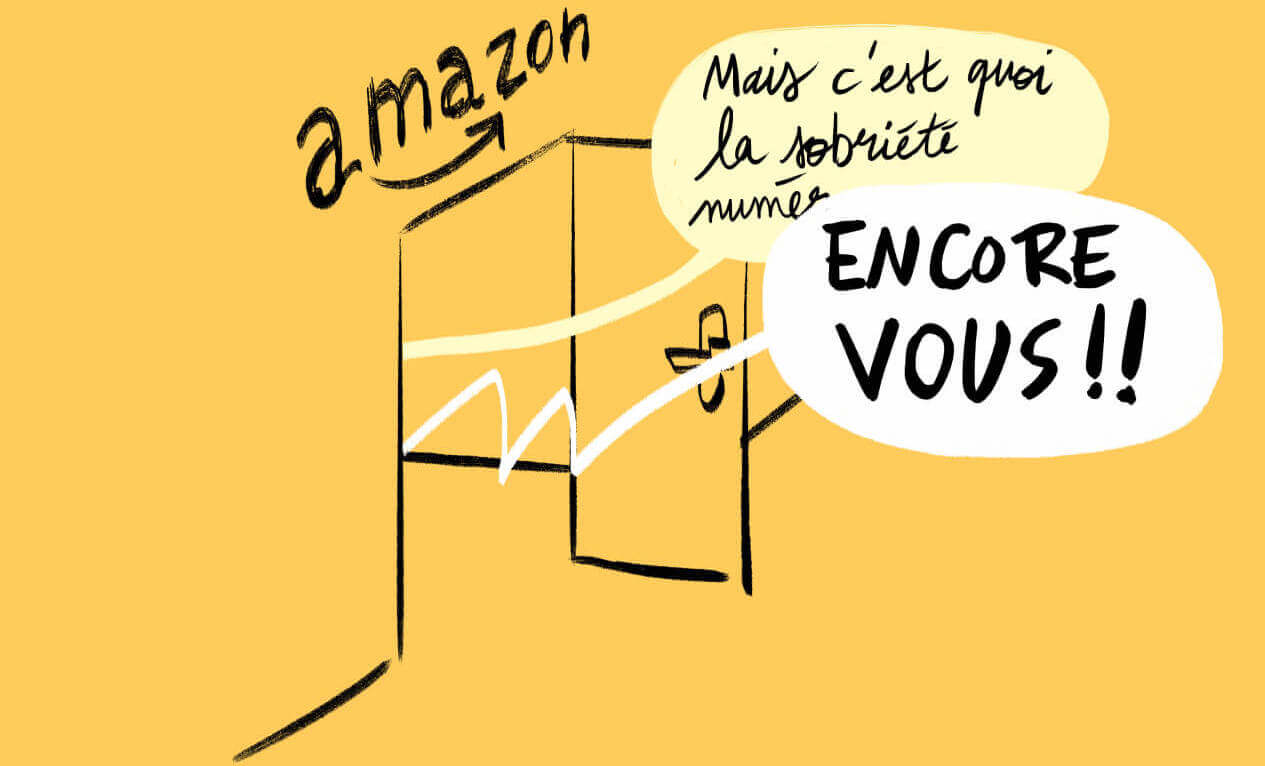 amazon
Mais c'est quoi
la sobriété
numér
ENCORE
VOUS!!